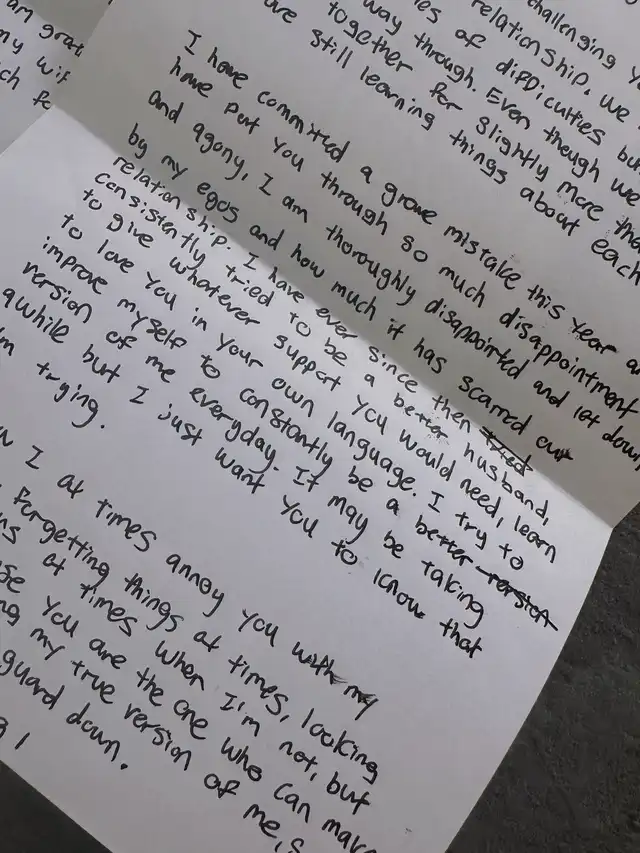 am grat
my wif
ch fo
challenging y
relationship. We
es of difficulties bu
way through. Even though we
together for slightly more tha
are still learning things about each
I have committed a grave mistake this year an
have put you through so much disappointment
and agony, I am thoroughly disappointed and let down
by my egos and how much it has scarred our
relationship. I have ever since then tried
consistently tried to be a better husband,
to give whatever support you would need, learn
to love you in your own language. I try to
improve myself to constantly be a better version
version of me everyday. It may be taking
awhile but I just want you to know that
I'm trying.
I at times annoy you with my
forgetting things at times, looking
at times when I'm not, but
you are the one who can make
my true version of me,
guard down.